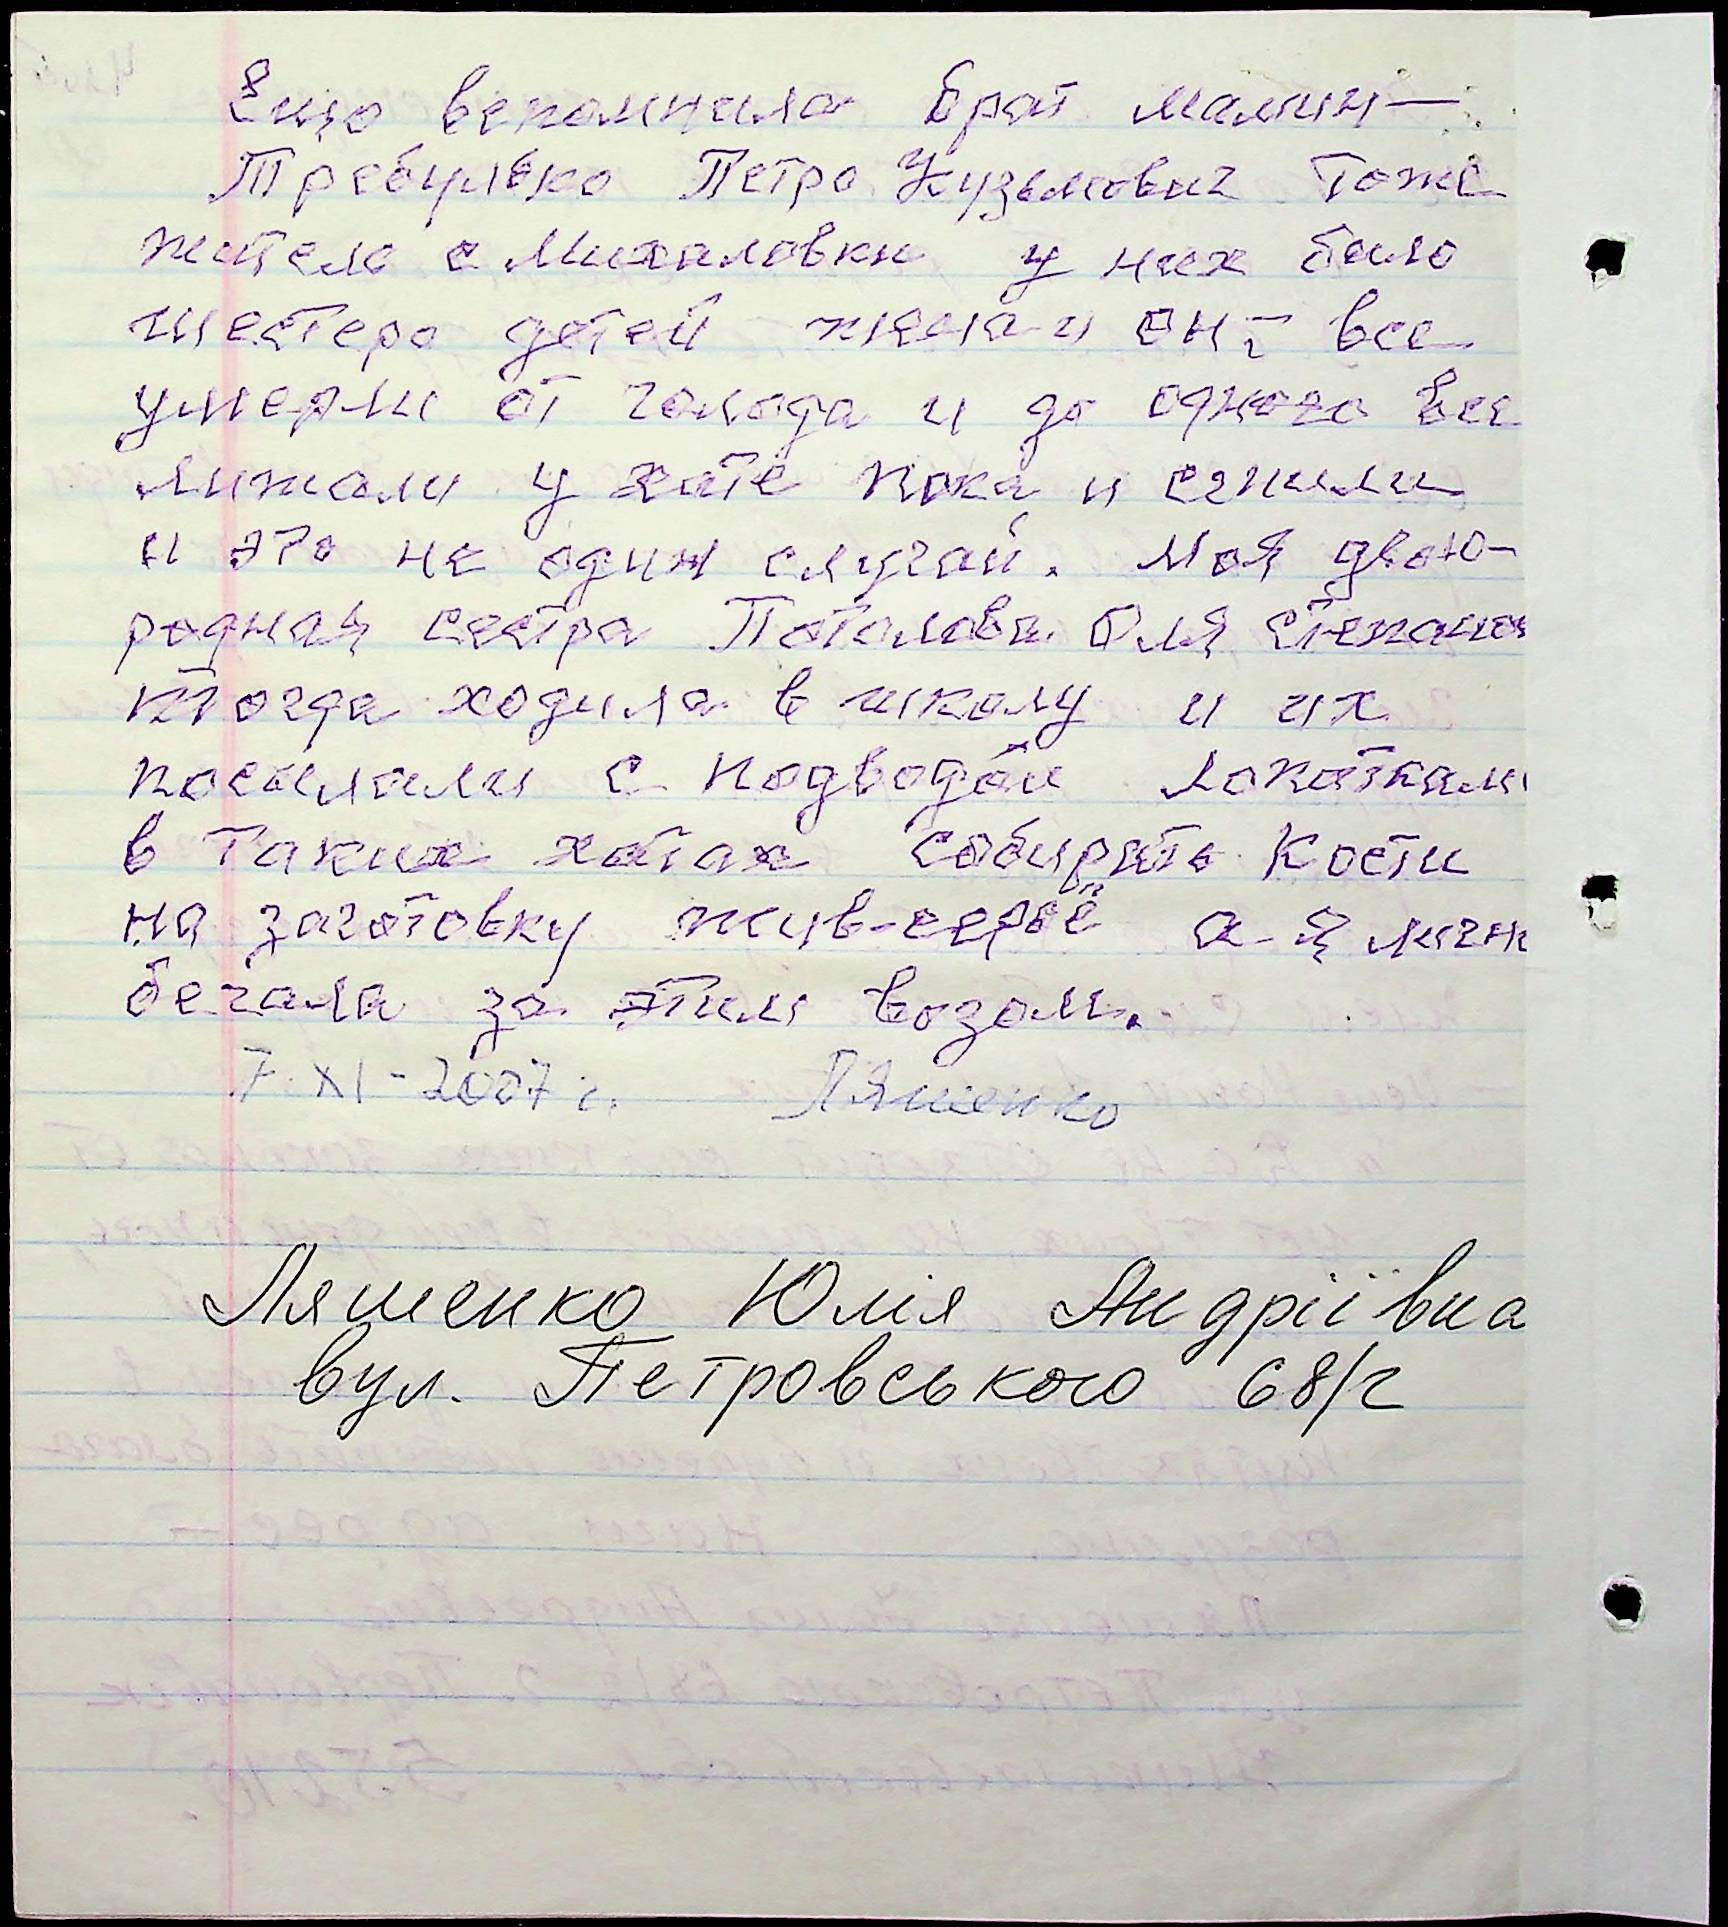 Ещо вспомнила брат мамин—
Требулько Петро Кузьмович тоже
житель с Михаловки у них было
шестеро детей жена и он — все
умерли от голода и до одного все
лижали у хате пока и сгнили
и это не один случай. Моя двою-
родная сестра Потапова Оля
тогда ходила в школу и их
посылали с подводой лопатками
в таких хатах собирать кости
на заготовку жив-серьё а я
бегала за этим возом.
7.XI-2007 г. Ляшенко
Ляшенко Юлія Андріївна
вул. Петровського 68/2